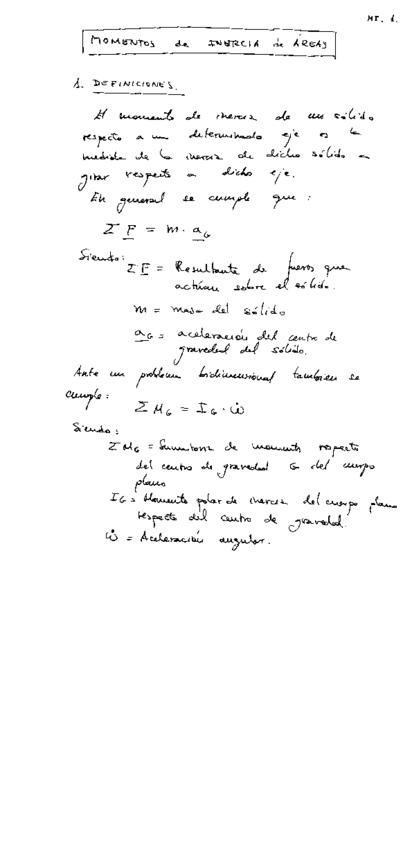 MI. 1.
MOMENTOS de INERCIA de ÁREAS
1. DEFINICIONES.
El momento de inercia de un sólido
respecto a un determinado eje es la
medida de la inercia de dicho sólido a
girar respecto a dicho eje.
En general se cumple que :
Σ F = m · a_G
Siendo:
Σ F = Resultante de fuerzas que
actúan sobre el sólido.
m = masa del sólido
a_G = aceleración del centro de
gravedad del sólido.
Ante un problema bidimensional también se
cumple:
Σ M_G = I_G · ω̇
Siendo:
Σ M_G = Sumatoria de momentos respecto
del centro de gravedad G del cuerpo
plano
I_G = Momento polar de inercia del cuerpo plano
respecto del centro de gravedad.
ω̇ = Aceleración angular.